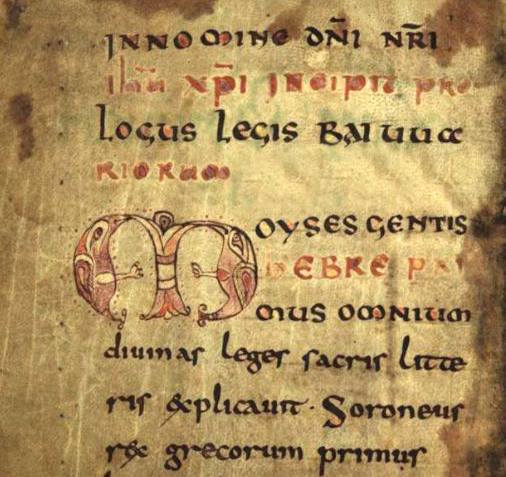 IN NOMINE DN̄I NR̄I
ih̄u xp̄i INCIPIT PRO
LOGUS LEGIS BAIUUA
RIORUM
MOYSES GENTIS
HEBRE PRI
MUS OMNIUM
diuinas leges sacris litte
ris explicauit · Soroneus
rex grecorum primus